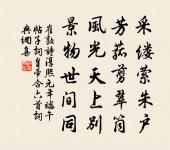 采缕萦朱户
芳菰剪翠筒
風光天上别
景物世间同
崔敦詩淳熙元年端午
帖子詞皇帝合六首詞
典網集